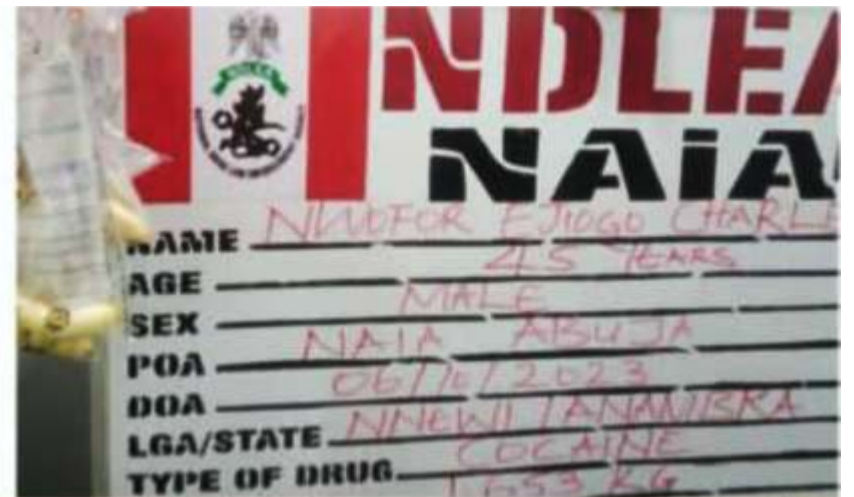 NDLEA
NAIA
NAME NWOFOR EJIOGO CHARLE
AGE 45 YEARS
SEX MALE
POA NAIA ABUJA
DOA 06/10/2023
LGA/STATE NNEWI /ANAMBRA
TYPE OF DRUG COCAINE
1.653 KG